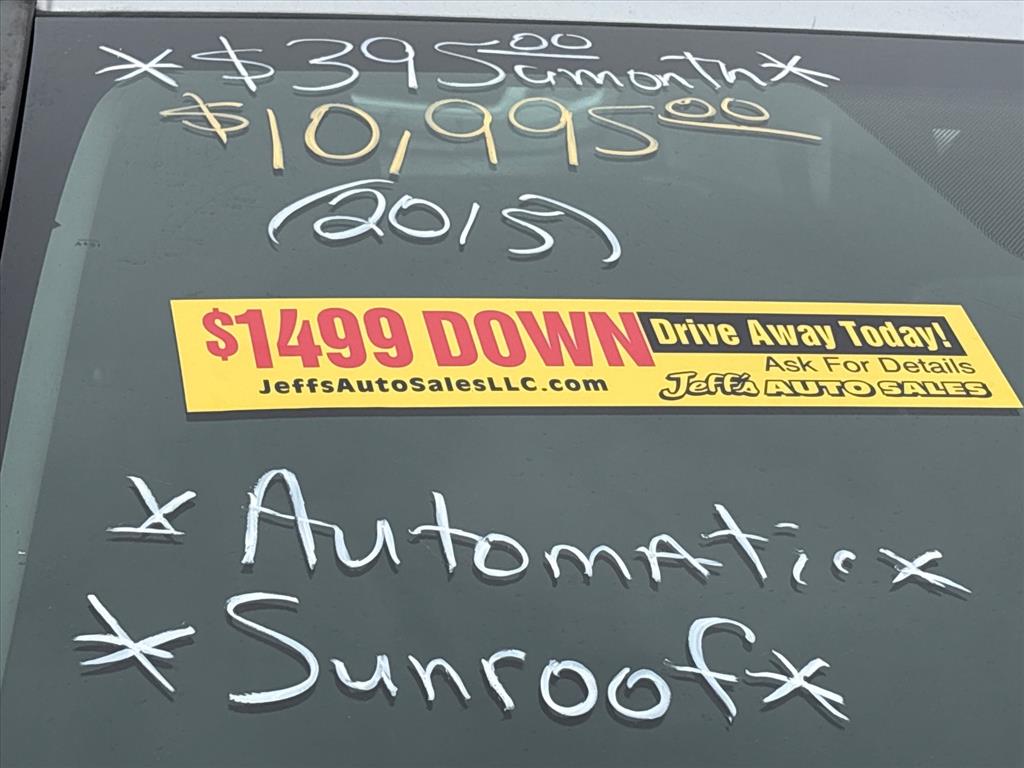 *$395.00 a month*
$10,995.00
(2015)
$1499 DOWN Drive Away Today!
Ask For Details
JeffsAutoSalesLLC.com Jeff's AUTO SALES
*Automatic*
*Sunroof*